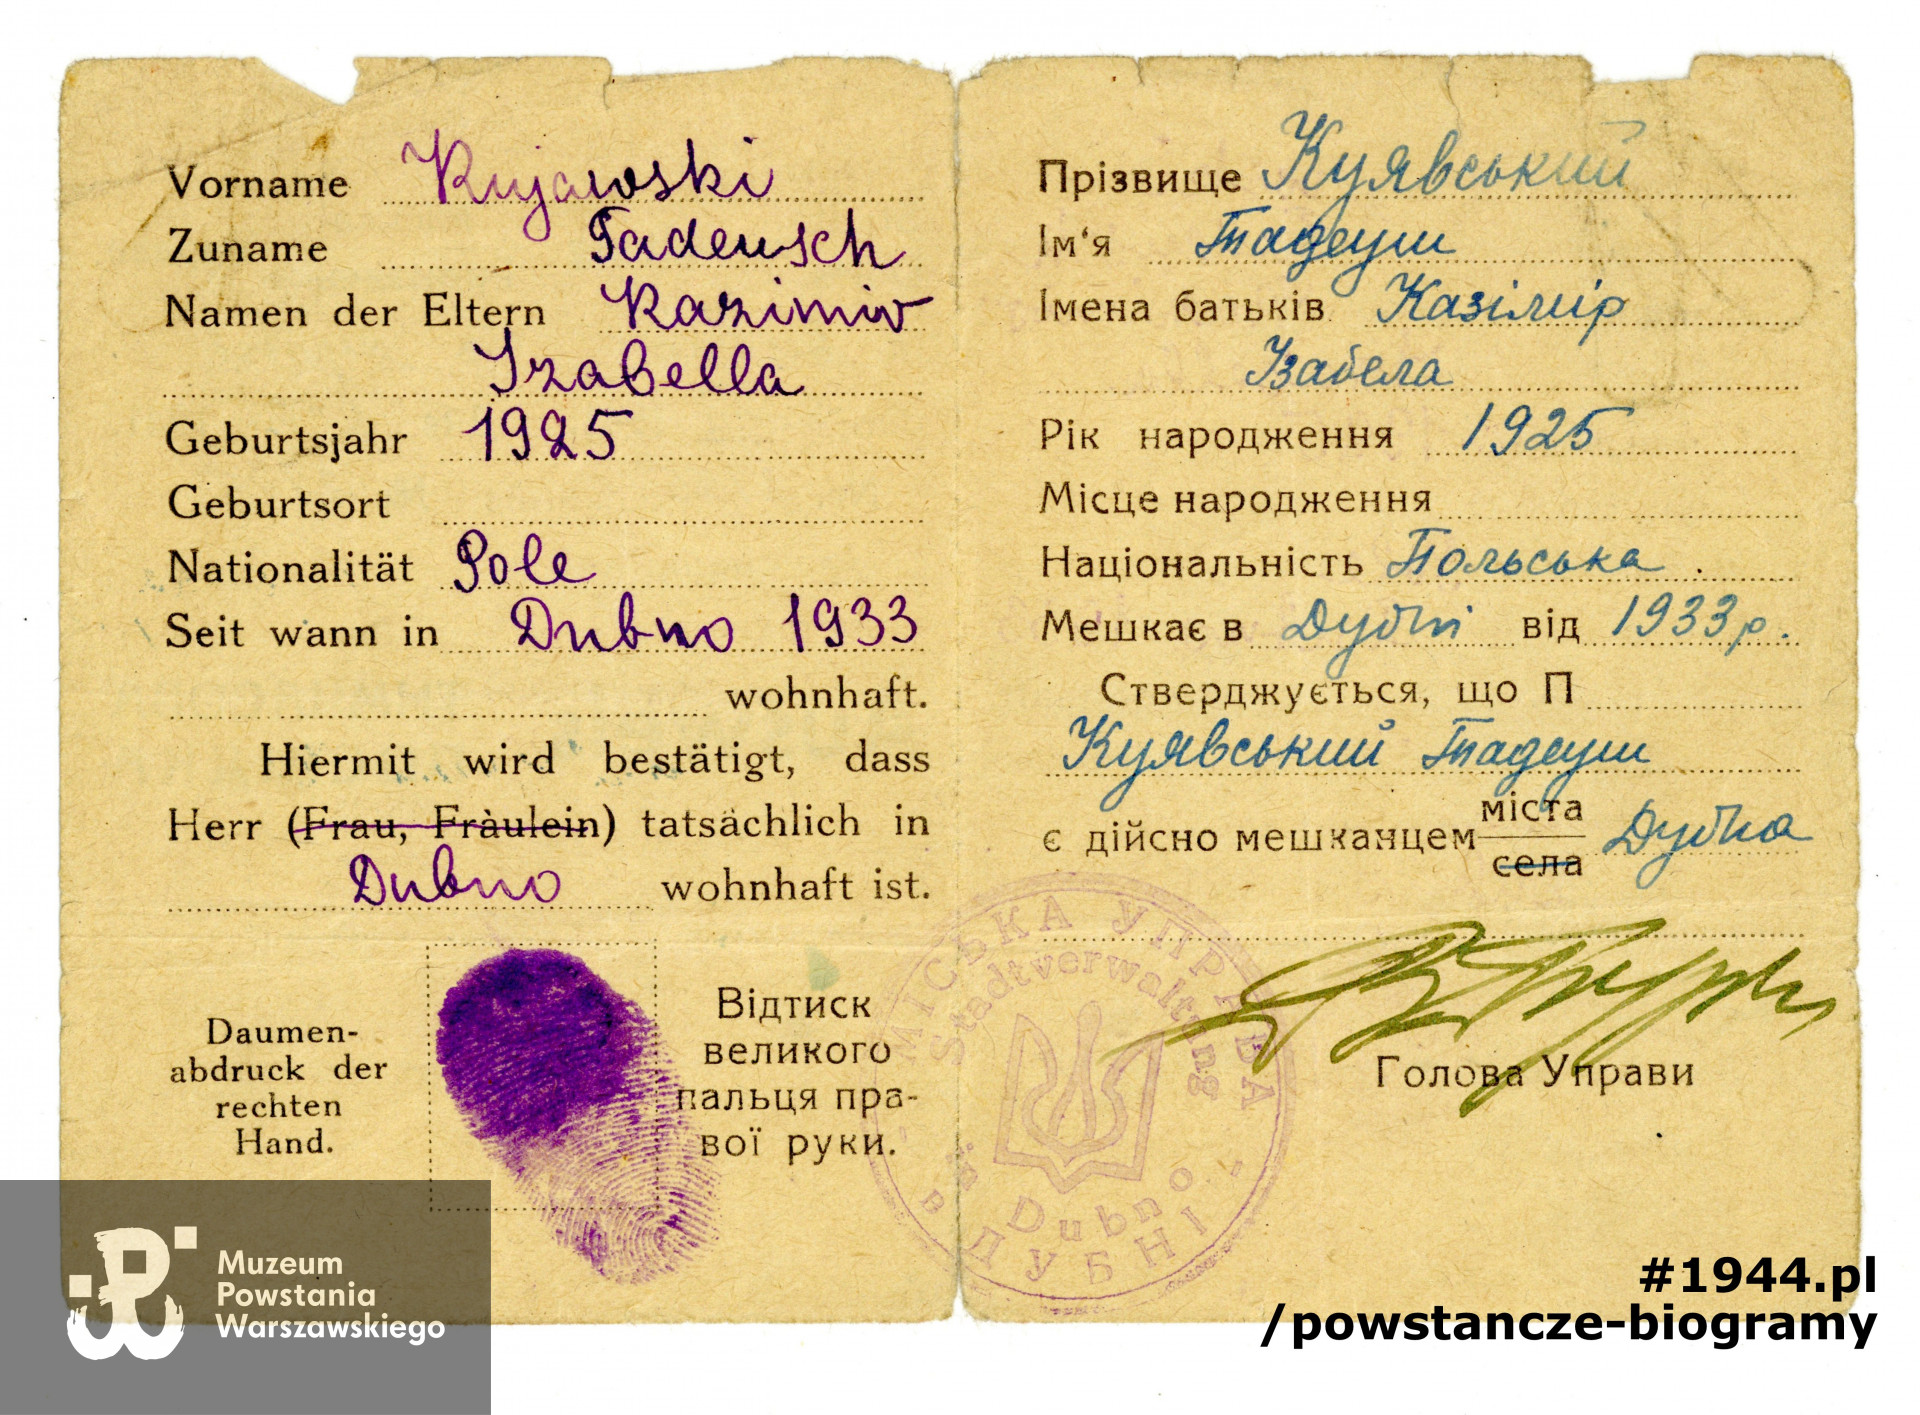 Vorname Kujawski
Zuname Tadeusch
Namen der Eltern Kazimir
Izabella
Geburtsjahr 1925
Geburtsort
Nationalität Pole
Seit wann in Dubno 1933
wohnhaft.
Hiermit wird bestätigt, dass
Herr (Frau, Fràulein) tatsächlich in
Dubno wohnhaft ist.
Daumen-
abdruck der
rechten
Hand.
Відтиск
великого
пальця пра-
вої руки.
Прізвище Куявський
Ім'я Тадеуш
Імена батьків Казімір
Ізабела
Рік народження 1925
Місце народження
Національність Польська
Мешкає в Дубні від 1933 р.
Стверджується, що П
Куявський Тадеуш
є дійсно мешканцем міста Дубна
села
Голова Управи
МІСЬКА УПРАВА
Stadtverwaltung
Dubno
в ДУБНІ
Muzeum
Powstania
Warszawskiego
#1944.pl
/powstancze-biogramy